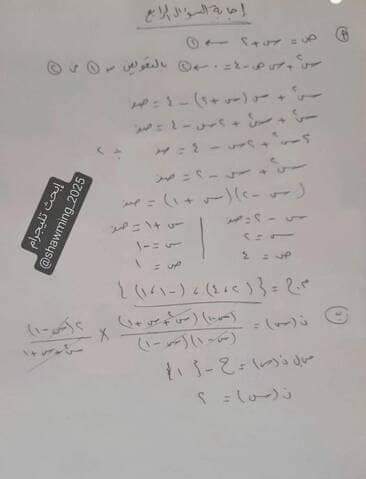 إجابة السؤال الرابع
(أ) ص = س + ٢ ← ①
س٢ + س ص - ٤ = ٠ ← ② بالتعويض من ① في ②
س٢ + س (س + ٢) - ٤ = صفر
س٢ + س٢ + ٢س - ٤ = صفر
٢س٢ + ٢س - ٤ = صفر ÷ ٢
س٢ + س - ٢ = صفر
(س - ٢)(س + ١) = صفر
س - ٢ = صفر | س + ١ = صفر
س = ٢ | س = -١
ص = ٤ | ص = ١
م.ح = {(٢، ٤)، (-١، ١)}
(ب) ن(س) = (س-١)(س٢+س+١) / (س-١)(س-١) × ٢(س-١) / س٢+س+١
مجال ن(س) = ح - {١}
ن(س) = ٢
إبحث تليجرام
@shawming_2025